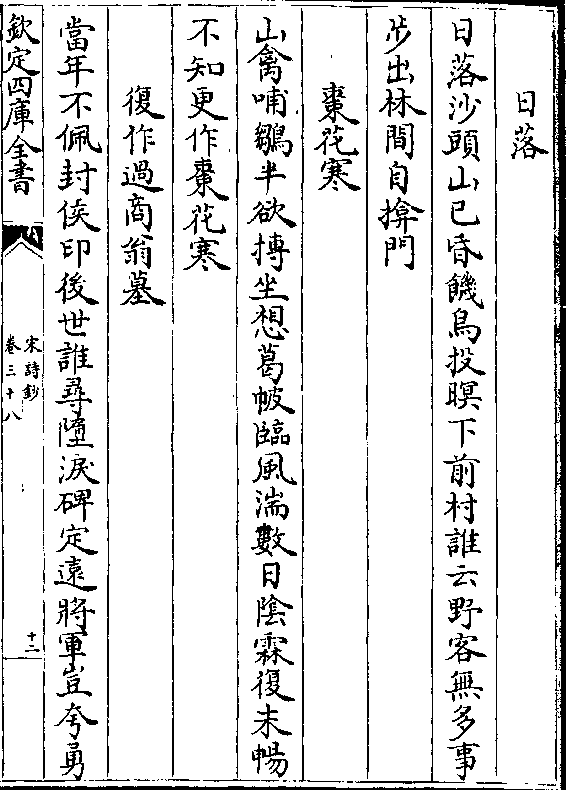 日落
日落沙頭山已昏饑鳥投暝下前村誰云野客無多事
步出林間自掩門
棗花寒
山禽哺鶵半欲摶坐想葛帔臨風湍數日陰霖復未暢
不知更作棗花寒
復作過商翁墓
當年不佩封侯印後世誰尋墮淚碑定遠將軍豈夸勇
欽定四庫全書
宋詩鈔
卷三十八
十二